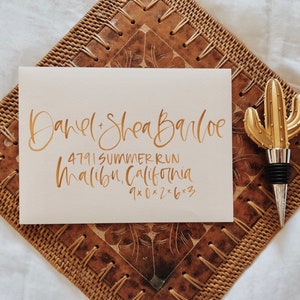 Daniel + Shea Barloe
4791 SUMMER RUN
Malibu, California
9x0x2x6x3